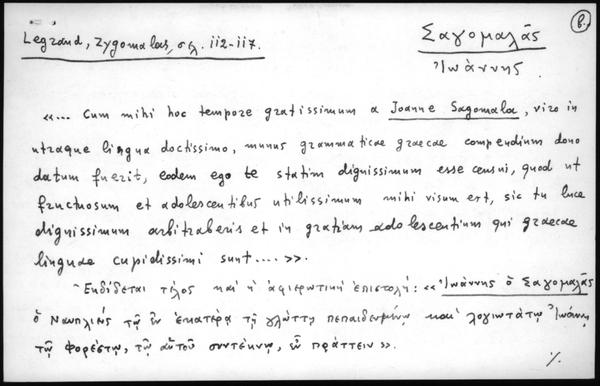 β.
Legrand, Zygomalas, σελ. 112-117.
Σαγομαλᾶς
Ἰωάννης
«... Cum mihi hoc tempore gratissimum a Joanne Sagomala, viro in
utraque lingua doctissimo, munus grammaticae graecae compendium dono
datum fuerit, eodem ego te statim dignissimum esse censui, quod ut
fructuosum et adolescentibus utilissimum mihi visum est, sic tu luce
dignissimum arbitraberis et in gratiam adolescentium qui graecae
linguae cupidissimi sunt....».
Ἐκδίδεται τέλος καὶ ἡ ἀφιερωτικὴ ἐπιστολή: «Ἰωάννης ὁ Σαγομαλᾶς
ὁ Ναυπλιεὺς τῷ ἐν ἑκατέρᾳ τῇ γλώττῃ πεπαιδευμένῳ καὶ λογιωτάτῳ Ἰωάννῃ
τῷ Φορέστῳ, τῷ αὐτοῦ συντέκνῳ, εὖ πράττειν».
./.